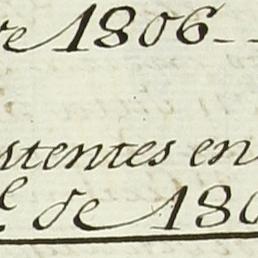 re 1806 -
stentes en
e de 180